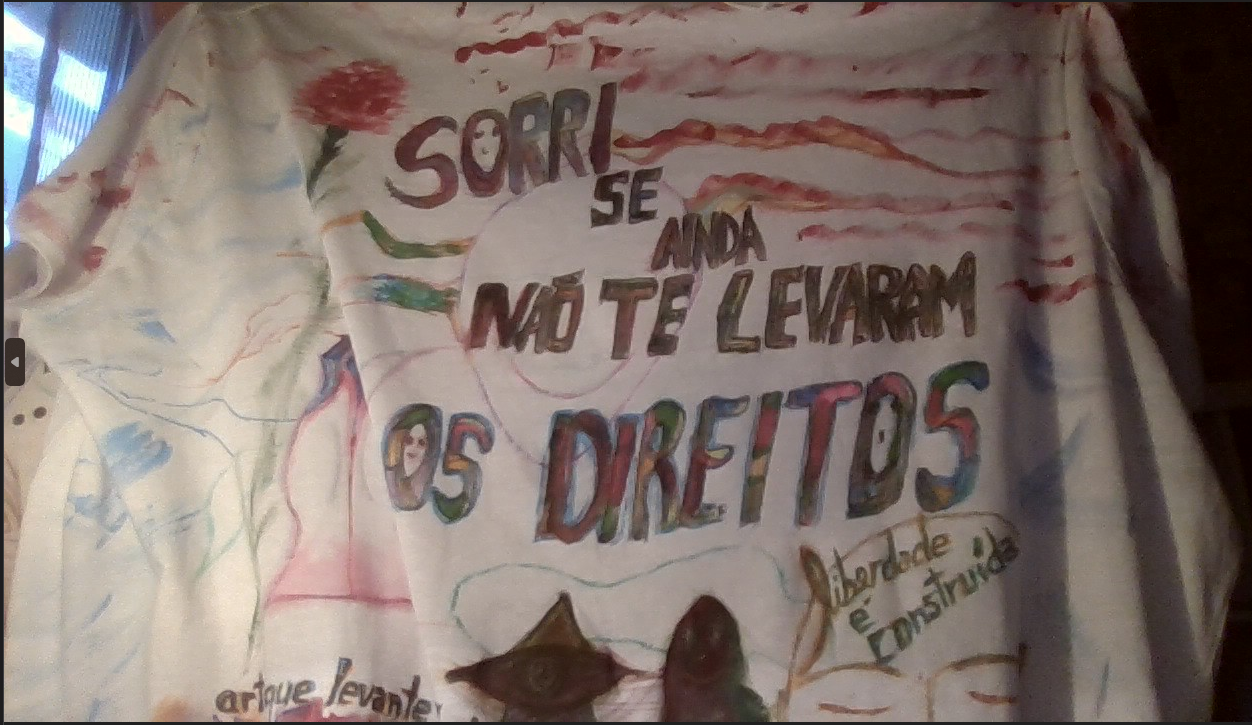 SORRI
SE
AINDA
NÃO TE LEVARAM
OS DIREITOS
liberdade
é
construída
artque levante